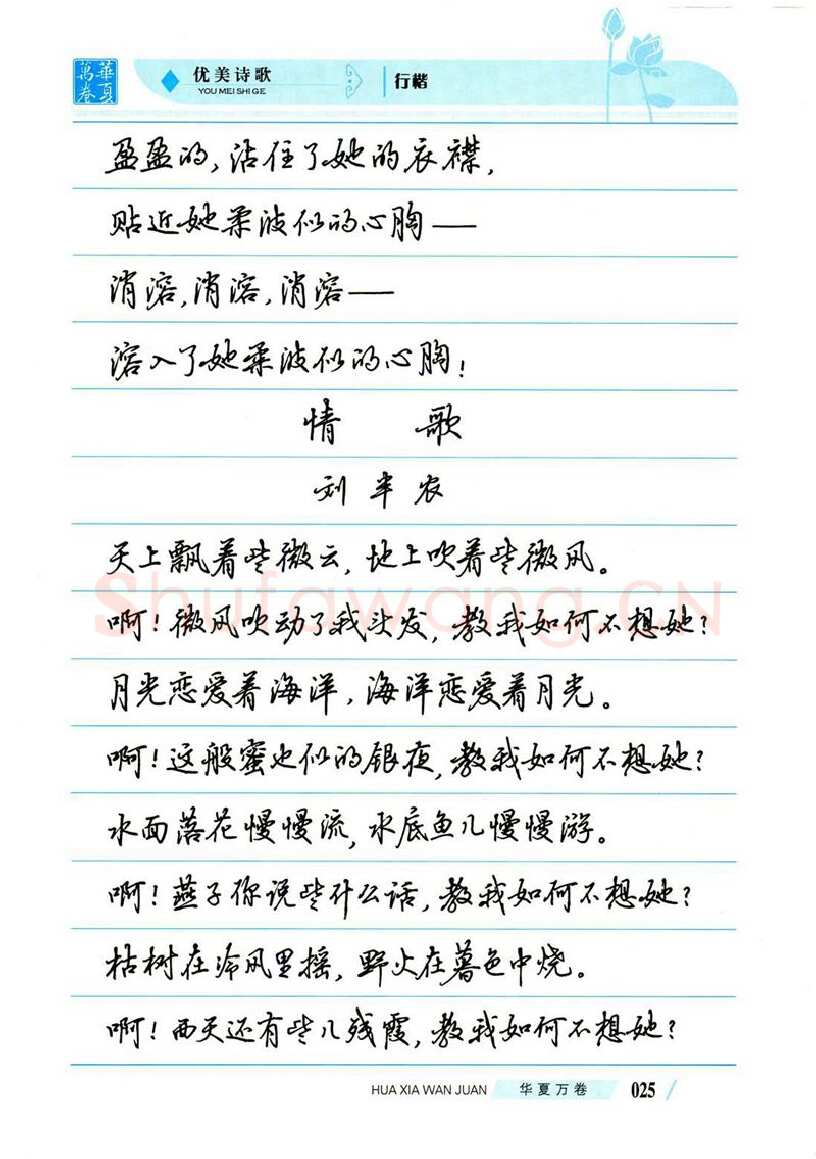 華夏萬卷
优美诗歌
YOU MEI SHI GE
行楷
盈盈的,沾住了她的衣襟,
贴近她柔波似的心胸——
消溶,消溶,消溶——
溶入了她柔波似的心胸!
情 歌
刘半农
天上飘着些微云,地上吹着些微风。
啊!微风吹动了我头发,教我如何不想她?
月光恋爱着海洋,海洋恋爱着月光。
啊!这般蜜也似的银夜,教我如何不想她?
水面落花慢慢流,水底鱼儿慢慢游。
啊!燕子你说些什么话,教我如何不想她?
枯树在冷风里摇,野火在暮色中烧。
啊!西天还有些儿残霞,教我如何不想她?
Shufawang.CN
HUA XIA WAN JUAN
华夏万卷
025